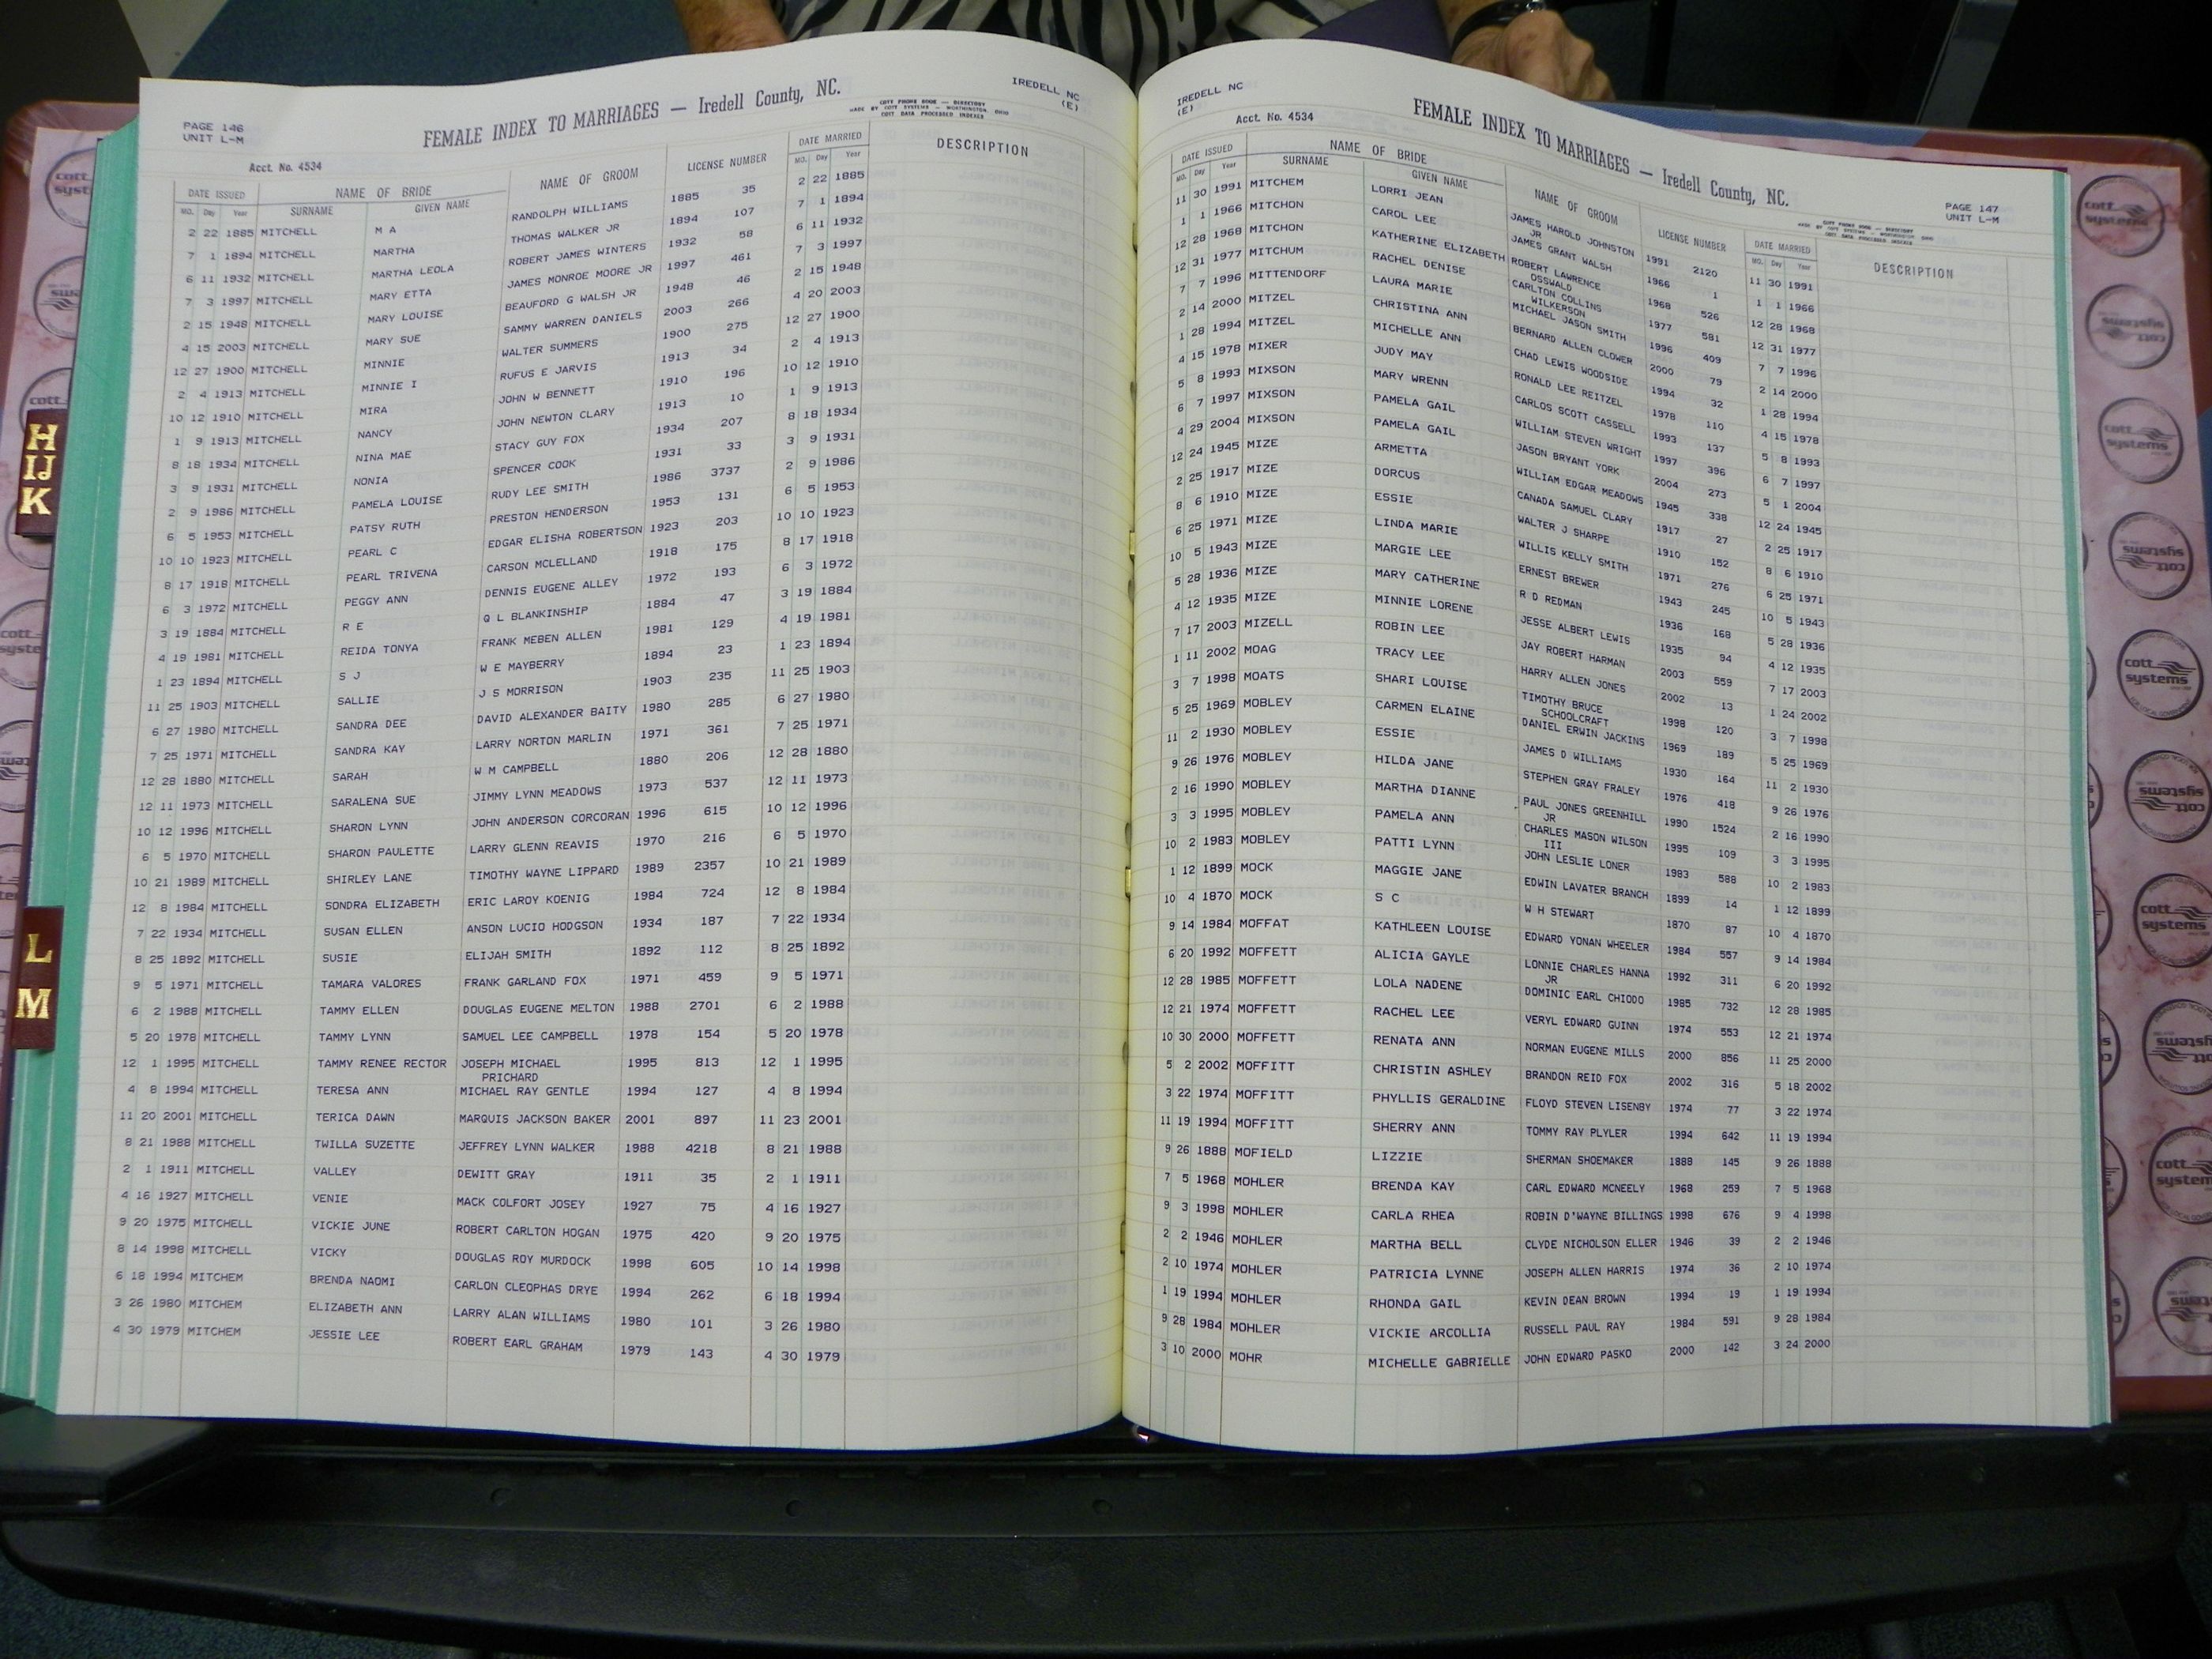 IREDELL NC
(E)
PAGE 146
UNIT L-M
FEMALE INDEX TO MARRIAGES — Iredell County, NC.
COTT PHONE BOOK — DIRECTORY
MADE BY COTT SYSTEMS — WORTHINGTON, OHIO
COTT DATA PROCESSED INDEXES
Acct. No. 4534
DATE ISSUED NAME OF BRIDE NAME OF GROOM LICENSE NUMBER DATE MARRIED DESCRIPTION
MO. Day Year SURNAME GIVEN NAME MO. Day Year
2 22 1885 MITCHELL M A RANDOLPH WILLIAMS 1885 35 2 22 1885
7 1 1894 MITCHELL MARTHA THOMAS WALKER JR 1894 107 7 1 1894
6 11 1932 MITCHELL MARTHA LEOLA ROBERT JAMES WINTERS 1932 58 6 11 1932
7 3 1997 MITCHELL MARY ETTA JAMES MONROE MOORE JR 1997 461 7 3 1997
2 15 1948 MITCHELL MARY LOUISE BEAUFORD G WALSH JR 1948 46 2 15 1948
4 15 2003 MITCHELL MARY SUE SAMMY WARREN DANIELS 2003 266 4 20 2003
12 27 1900 MITCHELL MINNIE WALTER SUMMERS 1900 275 12 27 1900
2 4 1913 MITCHELL MINNIE I RUFUS E JARVIS 1913 34 2 4 1913
10 12 1910 MITCHELL MIRA JOHN W BENNETT 1910 196 10 12 1910
1 9 1913 MITCHELL NANCY JOHN NEWTON CLARY 1913 10 1 9 1913
8 18 1934 MITCHELL NINA MAE STACY GUY FOX 1934 207 8 18 1934
3 9 1931 MITCHELL NONIA SPENCER COOK 1931 33 3 9 1931
2 9 1986 MITCHELL PAMELA LOUISE RUDY LEE SMITH 1986 3737 2 9 1986
6 5 1953 MITCHELL PATSY RUTH PRESTON HENDERSON 1953 131 6 5 1953
10 10 1923 MITCHELL PEARL C EDGAR ELISHA ROBERTSON 1923 203 10 10 1923
8 17 1918 MITCHELL PEARL TRIVENA CARSON MCLELLAND 1918 175 8 17 1918
6 3 1972 MITCHELL PEGGY ANN DENNIS EUGENE ALLEY 1972 193 6 3 1972
3 19 1884 MITCHELL R E Q L BLANKINSHIP 1884 47 3 19 1884
4 19 1981 MITCHELL REIDA TONYA FRANK MEBEN ALLEN 1981 129 4 19 1981
1 23 1894 MITCHELL S J W E MAYBERRY 1894 23 1 23 1894
11 25 1903 MITCHELL SALLIE J S MORRISON 1903 235 11 25 1903
6 27 1980 MITCHELL SANDRA DEE DAVID ALEXANDER BAITY 1980 285 6 27 1980
7 25 1971 MITCHELL SANDRA KAY LARRY NORTON MARLIN 1971 361 7 25 1971
12 28 1880 MITCHELL SARAH W M CAMPBELL 1880 206 12 28 1880
12 11 1973 MITCHELL SARALENA SUE JIMMY LYNN MEADOWS 1973 537 12 11 1973
10 12 1996 MITCHELL SHARON LYNN JOHN ANDERSON CORCORAN 1996 615 10 12 1996
6 5 1970 MITCHELL SHARON PAULETTE LARRY GLENN REAVIS 1970 216 6 5 1970
10 21 1989 MITCHELL SHIRLEY LANE TIMOTHY WAYNE LIPPARD 1989 2357 10 21 1989
12 8 1984 MITCHELL SONDRA ELIZABETH ERIC LAROY KOENIG 1984 724 12 8 1984
7 22 1934 MITCHELL SUSAN ELLEN ANSON LUCIO HODGSON 1934 187 7 22 1934
8 25 1892 MITCHELL SUSIE ELIJAH SMITH 1892 112 8 25 1892
9 5 1971 MITCHELL TAMARA VALORES FRANK GARLAND FOX 1971 459 9 5 1971
6 2 1988 MITCHELL TAMMY ELLEN DOUGLAS EUGENE MELTON 1988 2701 6 2 1988
5 20 1978 MITCHELL TAMMY LYNN SAMUEL LEE CAMPBELL 1978 154 5 20 1978
12 1 1995 MITCHELL TAMMY RENEE RECTOR JOSEPH MICHAEL 1995 813 12 1 1995
PRICHARD
4 8 1994 MITCHELL TERESA ANN MICHAEL RAY GENTLE 1994 127 4 8 1994
11 20 2001 MITCHELL TERICA DAWN MARQUIS JACKSON BAKER 2001 897 11 23 2001
8 21 1988 MITCHELL TWILLA SUZETTE JEFFREY LYNN WALKER 1988 4218 8 21 1988
2 1 1911 MITCHELL VALLEY DEWITT GRAY 1911 35 2 1 1911
4 16 1927 MITCHELL VENIE MACK COLFORT JOSEY 1927 75 4 16 1927
9 20 1975 MITCHELL VICKIE JUNE ROBERT CARLTON HOGAN 1975 420 9 20 1975
8 14 1998 MITCHELL VICKY DOUGLAS ROY MURDOCK 1998 605 10 14 1998
6 18 1994 MITCHEM BRENDA NAOMI CARLON CLEOPHAS DRYE 1994 262 6 18 1994
3 26 1980 MITCHEM ELIZABETH ANN LARRY ALAN WILLIAMS 1980 101 3 26 1980
4 30 1979 MITCHEM JESSIE LEE ROBERT EARL GRAHAM 1979 143 4 30 1979
H
IJ
K
L
M
IREDELL NC
(E)
Acct. No. 4534
FEMALE INDEX TO MARRIAGES — Iredell County, NC.
PAGE 147
UNIT L-M
DATE ISSUED NAME OF BRIDE NAME OF GROOM LICENSE NUMBER DATE MARRIED DESCRIPTION
MO. Day Year SURNAME GIVEN NAME MO. Day Year
11 30 1991 MITCHEM LORRI JEAN JAMES HAROLD JOHNSTON 1991 2120 11 30 1991
JR
1 1 1966 MITCHON CAROL LEE JAMES GRANT WALSH 1966 1 1 1 1966
12 28 1968 MITCHON KATHERINE ELIZABETH ROBERT LAWRENCE 1968 526 12 28 1968
OSSWALD
12 31 1977 MITCHUM RACHEL DENISE CARLTON COLLINS 1977 581 12 31 1977
WILKERSON
7 7 1996 MITTENDORF LAURA MARIE MICHAEL JASON SMITH 1996 409 7 7 1996
2 14 2000 MITZEL CHRISTINA ANN BERNARD ALLEN CLOWER 2000 79 2 14 2000
1 28 1994 MITZEL MICHELLE ANN CHAD LEWIS WOODSIDE 1994 32 1 28 1994
4 15 1978 MIXER JUDY MAY RONALD LEE REITZEL 1978 110 4 15 1978
5 8 1993 MIXSON MARY WRENN CARLOS SCOTT CASSELL 1993 137 5 8 1993
6 7 1997 MIXSON PAMELA GAIL WILLIAM STEVEN WRIGHT 1997 396 6 7 1997
4 29 2004 MIXSON PAMELA GAIL JASON BRYANT YORK 2004 273 5 1 2004
12 24 1945 MIZE ARMETTA WILLIAM EDGAR MEADOWS 1945 338 12 24 1945
2 25 1917 MIZE DORCUS CANADA SAMUEL CLARY 1917 27 2 25 1917
8 6 1910 MIZE ESSIE WALTER J SHARPE 1910 152 8 6 1910
6 25 1971 MIZE LINDA MARIE WILLIS KELLY SMITH 1971 276 6 25 1971
10 5 1943 MIZE MARGIE LEE ERNEST BREWER 1943 245 10 5 1943
5 28 1936 MIZE MARY CATHERINE R D REDMAN 1936 168 5 28 1936
4 12 1935 MIZE MINNIE LORENE JESSE ALBERT LEWIS 1935 94 4 12 1935
7 17 2003 MIZELL ROBIN LEE JAY ROBERT HARMAN 2003 559 7 17 2003
1 11 2002 MOAG TRACY LEE HARRY ALLEN JONES 2002 13 1 24 2002
3 7 1998 MOATS SHARI LOUISE TIMOTHY BRUCE 1998 120 3 7 1998
SCHOOLCRAFT
5 25 1969 MOBLEY CARMEN ELAINE DANIEL ERWIN JACKINS 1969 189 5 25 1969
11 2 1930 MOBLEY ESSIE JAMES D WILLIAMS 1930 164 11 2 1930
9 26 1976 MOBLEY HILDA JANE STEPHEN GRAY FRALEY 1976 418 9 26 1976
2 16 1990 MOBLEY MARTHA DIANNE PAUL JONES GREENHILL 1990 1524 2 16 1990
JR
3 3 1995 MOBLEY PAMELA ANN CHARLES MASON WILSON 1995 109 3 3 1995
III
10 2 1983 MOBLEY PATTI LYNN JOHN LESLIE LONER 1983 588 10 2 1983
1 12 1899 MOCK MAGGIE JANE EDWIN LAVATER BRANCH 1899 14 1 12 1899
10 4 1870 MOCK S C W H STEWART 1870 87 10 4 1870
9 14 1984 MOFFAT KATHLEEN LOUISE EDWARD YONAN WHEELER 1984 557 9 14 1984
6 20 1992 MOFFETT ALICIA GAYLE LONNIE CHARLES HANNA 1992 311 6 20 1992
JR
12 28 1985 MOFFETT LOLA NADENE DOMINIC EARL CHIODO 1985 732 12 28 1985
12 21 1974 MOFFETT RACHEL LEE VERYL EDWARD GUINN 1974 553 12 21 1974
10 30 2000 MOFFETT RENATA ANN NORMAN EUGENE MILLS 2000 856 11 25 2000
5 2 2002 MOFFITT CHRISTIN ASHLEY BRANDON REID FOX 2002 316 5 18 2002
3 22 1974 MOFFITT PHYLLIS GERALDINE FLOYD STEVEN LISENBY 1974 77 3 22 1974
11 19 1994 MOFFITT SHERRY ANN TOMMY RAY PLYLER 1994 642 11 19 1994
9 26 1888 MOFIELD LIZZIE SHERMAN SHOEMAKER 1888 145 9 26 1888
7 5 1968 MOHLER BRENDA KAY CARL EDWARD MCNEELY 1968 259 7 5 1968
9 3 1998 MOHLER CARLA RHEA ROBIN D'WAYNE BILLINGS 1998 676 9 4 1998
2 2 1946 MOHLER MARTHA BELL CLYDE NICHOLSON ELLER 1946 39 2 2 1946
2 10 1974 MOHLER PATRICIA LYNNE JOSEPH ALLEN HARRIS 1974 36 2 10 1974
1 19 1994 MOHLER RHONDA GAIL KEVIN DEAN BROWN 1994 19 1 19 1994
9 28 1984 MOHLER VICKIE ARCOLLIA RUSSELL PAUL RAY 1984 591 9 28 1984
3 10 2000 MOHR MICHELLE GABRIELLE JOHN EDWARD PASKO 2000 142 3 24 2000
cott
systems